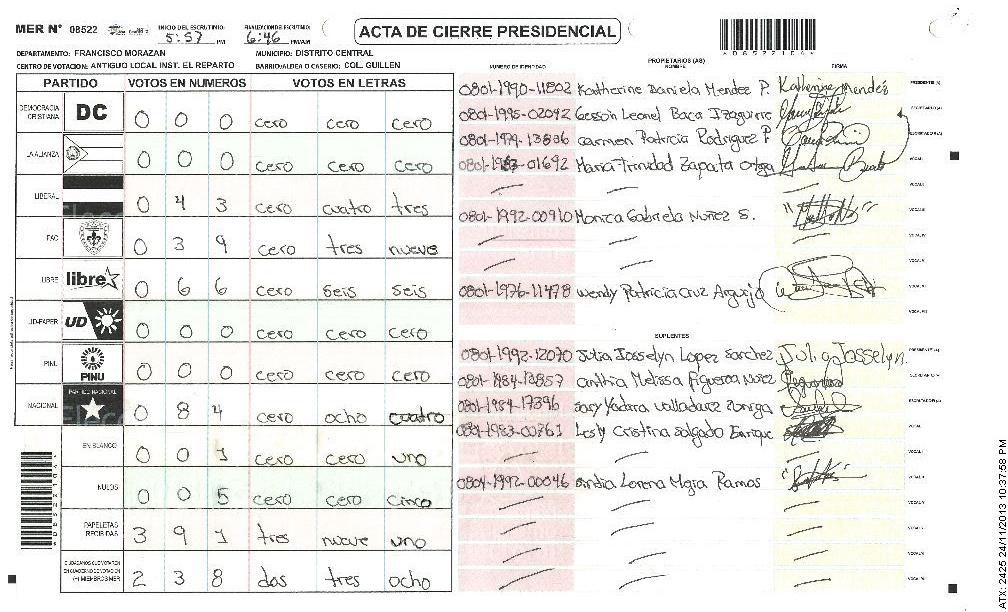 MER N° 08522 INICIO DEL ESCRUTINIO: 5:57 PM FINALIZACION DEL ESCRUTINIO: 6:46 PM/AM ACTA DE CIERRE PRESIDENCIAL
DEPARTAMENTO: FRANCISCO MORAZAN MUNICIPIO: DISTRITO CENTRAL
CENTRO DE VOTACION: ANTIGUO LOCAL INST. EL REPARTO BARRIO/ALDEA O CASERIO: COL. GUILLEN
PARTIDO VOTOS EN NUMEROS VOTOS EN LETRAS
DEMOCRACIA CRISTIANA DC 0 0 0 cero cero cero
LA ALIANZA 0 0 0 cero cero cero
LIBERAL 0 4 3 cero cuatro tres
PAC 0 3 9 cero tres nueve
LIBRE libre 0 6 6 cero seis seis
UD-FAPER UD 0 0 0 cero cero cero
PINU PINU 0 0 0 cero cero cero
NACIONAL PARTIDO NACIONAL 0 8 4 cero ocho cuatro
EN BLANCO 0 0 1 cero cero uno
NULOS 0 0 5 cero cero cinco
PAPELETAS RECIBIDAS 3 9 1 tres nueve uno
CIUDADANOS QUE VOTARON EN CUADERNO DE VOTACION (+) MIEMBROS MER 2 3 8 dos tres ocho
PROPIETARIOS (AS)
NUMERO DE IDENTIDAD NOMBRE FIRMA
0801-1990-11802 Katherine Daniela Mendez P. Katherine Mendés PRESIDENTE (A)
0801-1995-02042 Gesson Leonel Baca Izaguirre SECRETARIO (A)
0801-1979-13836 Carmen Patricia Rodriguez P ESCRUTADOR (A)
0801-1983-01692 Maria Trinidad Zapata Ortega VOCAL I
VOCAL II
0801-1992-00910 Monica Gabriela Nuñez S. VOCAL III
VOCAL IV
VOCAL V
0801-1976-11478 Wendy Patricia Cruz Argujo VOCAL VI
VOCAL VII
SUPLENTES
0801-1992-12070 Julia Josselyn Lopez Sanchez Julia Josselyn. PRESIDENTE (A)
0801-1984-13857 Cinthia Melissa Figueroa Nuñez SECRETARIO (A)
0801-1984-17396 Sary Yadara Valladarez Zuniga ESCRUTADOR (A)
0801-1983-00761 Lesly Cristina Salgado Enrique VOCAL I
VOCAL II
0801-1992-00046 Lorena Mejia Ramos VOCAL III
VOCAL IV
VOCAL V
VOCAL VI
VOCAL VII
ATX: 2425 24/11/2013 10:37:58 PM